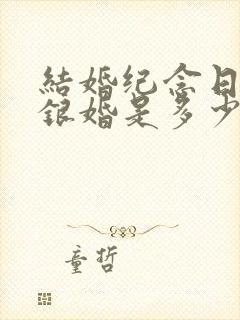 結婚纪念日
銀婚是多少
童哲